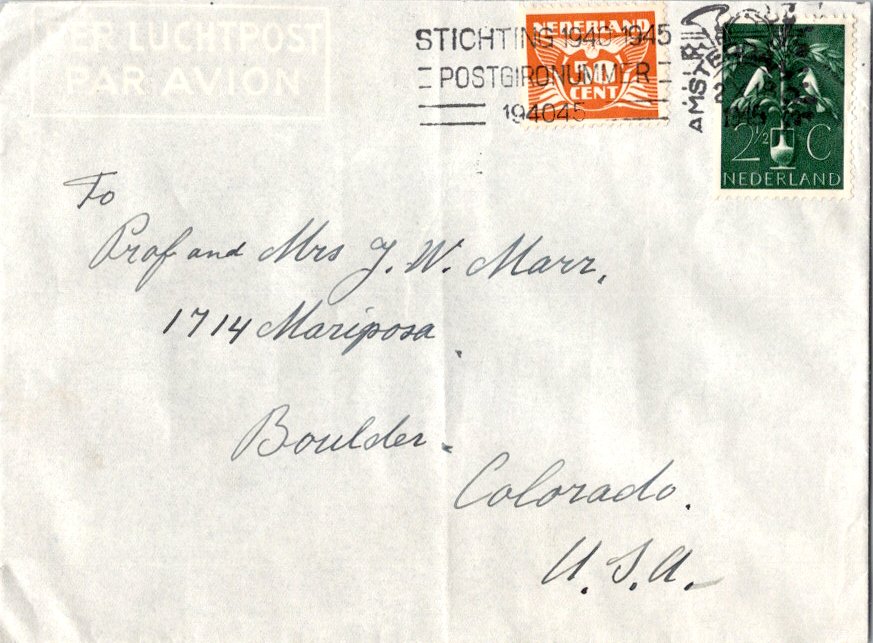 PER LUCHTPOST
PAR AVION
STICHTING 1940-1945
POSTGIRONUMMER
194045
NEDERLAND
50
CENT
AMSTERDAM
1945
2½ C
NEDERLAND
To
Prof and Mrs J. W. Marr,
1714 Mariposa
Boulder.
Colorado.
U.S.A.